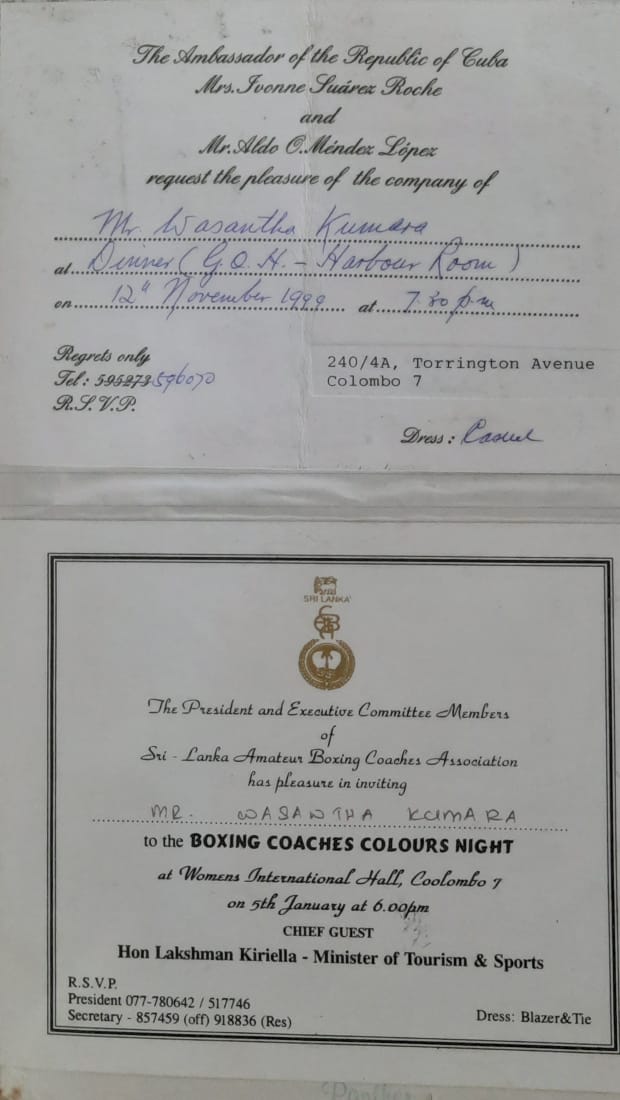 The Ambassador of the Republic of Cuba
Mrs. Ivonne Suárez Roche
and
Mr. Aldo O. Méndez López
request the pleasure of the company of
Mr. Wasantha Kumara
at Dinner (G.O.H. - Harbour Room)
on 12th November 1999 at 7.30 p.m
Regrets only
Tel: 595273 596070
R.S.V.P.
240/4A, Torrington Avenue
Colombo 7
Dress: Casual
SRI LANKA
The President and Executive Committee Members
of
Sri - Lanka Amateur Boxing Coaches Association
has pleasure in inviting
MR. WASANTHA KUMARA
to the BOXING COACHES COLOURS NIGHT
at Womens International Hall, Coolombo 7
on 5th January at 6.00pm
CHIEF GUEST
Hon Lakshman Kiriella - Minister of Tourism & Sports
R.S.V.P.
President 077-780642 / 517746
Secretary - 857459 (off) 918836 (Res)
Dress: Blazer&Tie